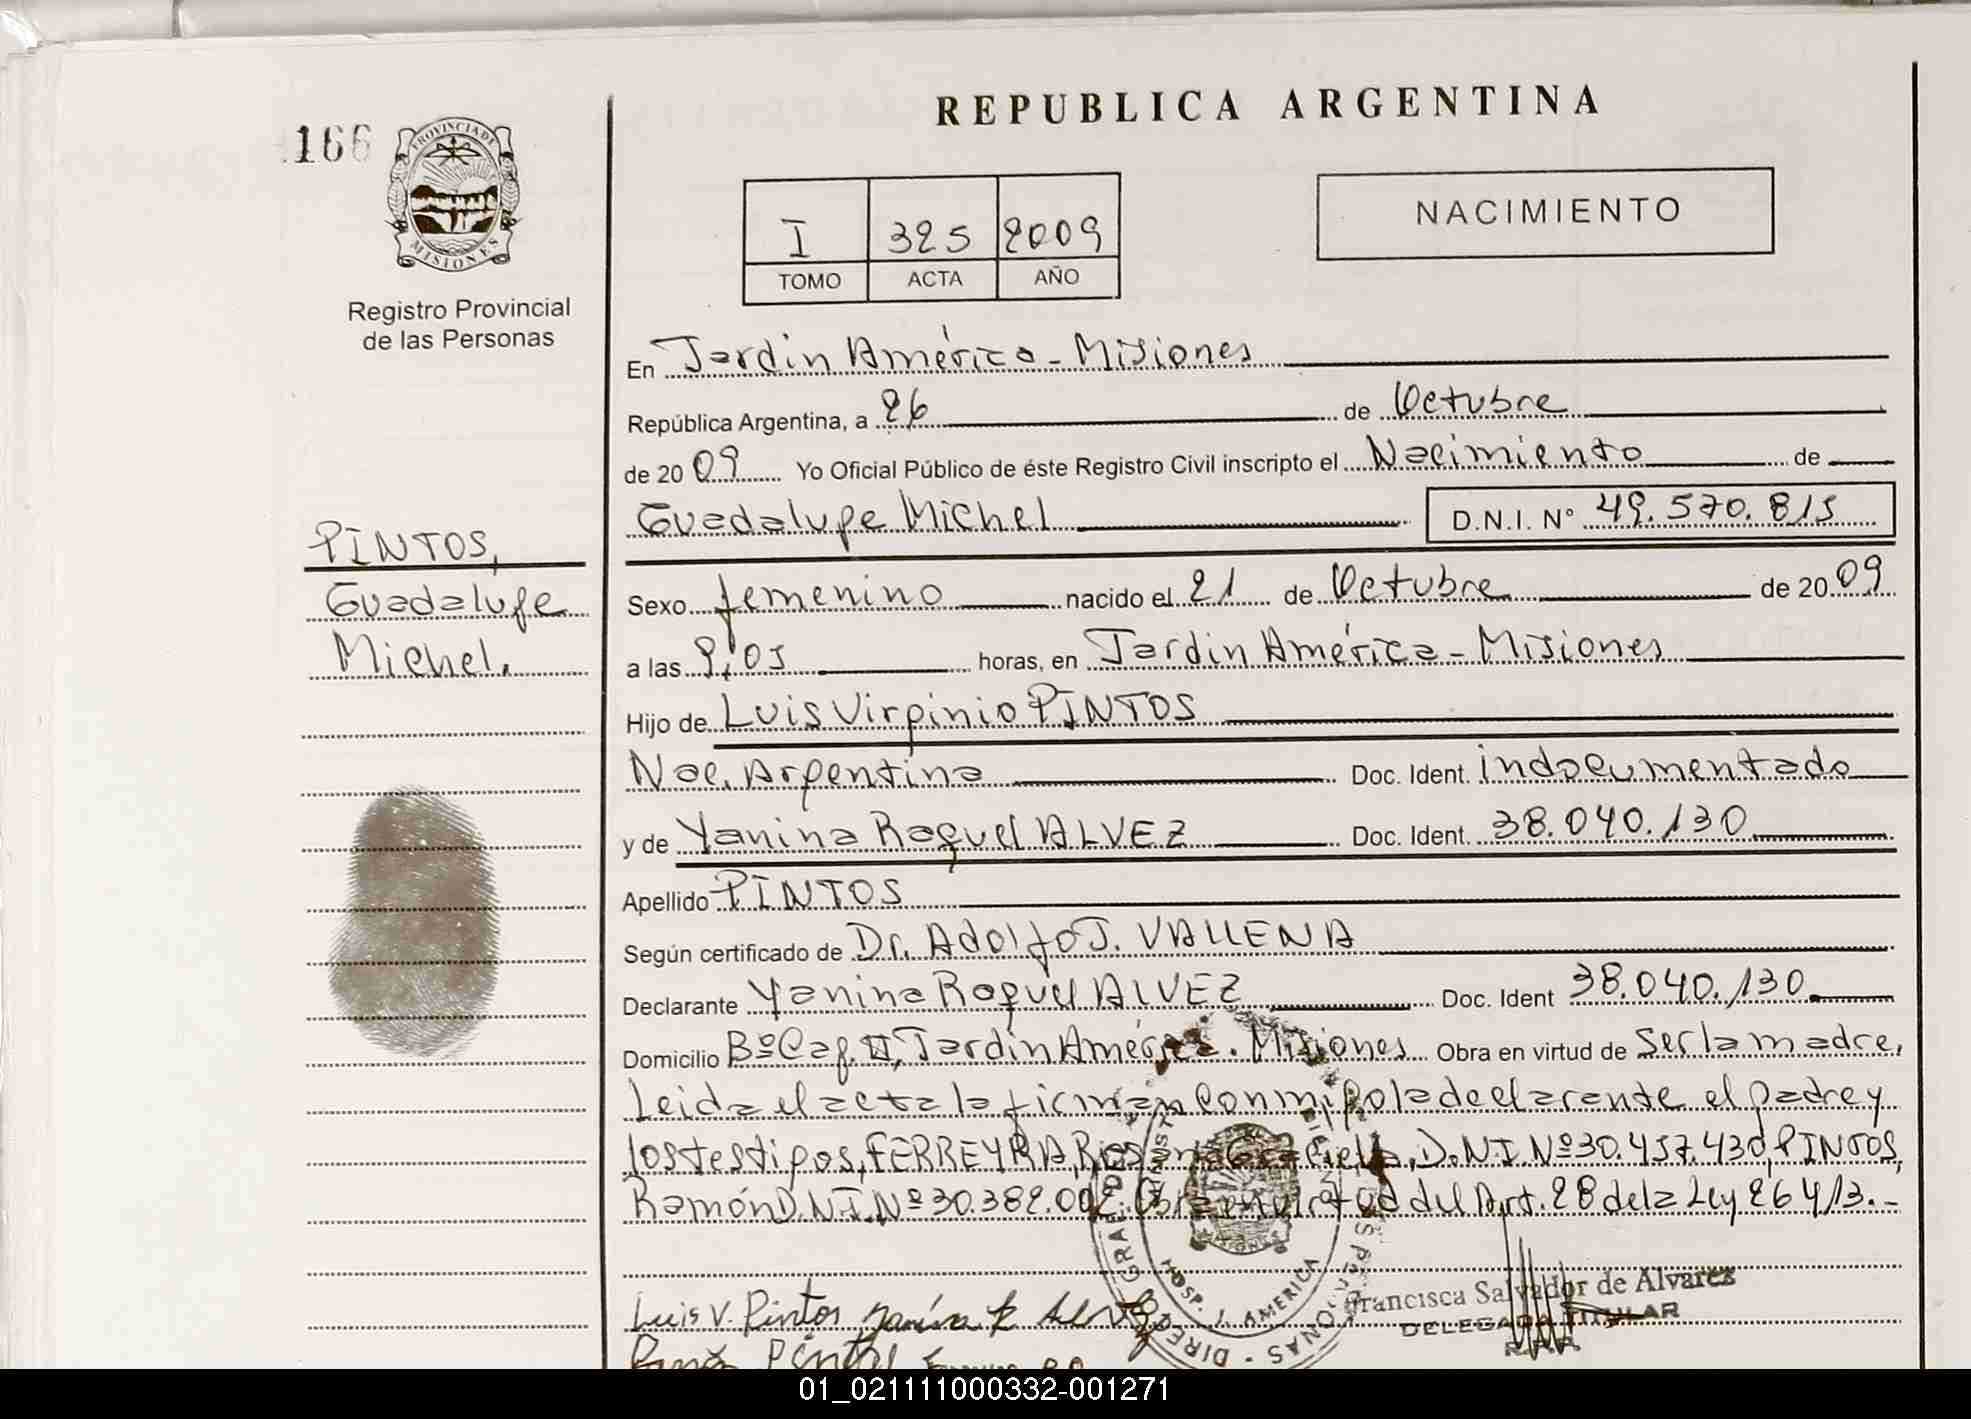 REPUBLICA ARGENTINA
166
PROVINCIA DE
MISIONES
Registro Provincial
de las Personas
I 325 2009
TOMO ACTA AÑO
NACIMIENTO
En Jardín América - Misiones
República Argentina, a 26 de Octubre
de 2009 Yo Oficial Público de éste Registro Civil inscripto el Nacimiento de
Guadalupe Michel D.N.I. N° 49.570.815
PINTOS,
Guadalupe
Michel.
Sexo femenino nacido el 21 de Octubre de 2009
a las 9,05 horas, en Jardín América - Misiones
Hijo de Luis Virginio PINTOS
Nac. Argentina Doc. Ident. indocumentado
y de Yanina Raquel ALVEZ Doc. Ident. 38.040.130
Apellido PINTOS
Según certificado de Dr. Adolfo J. VALLENA
Declarante Yanina Raquel ALVEZ Doc. Ident 38.040.130
Domicilio Bº Caf. II, Jardín América. Misiones Obra en virtud de Ser la madre,
Leida el acta la firman conmigo la declarante el padre y
los testigos, FERREYRA, Rosana Graciela, D.N.I. Nº 30.457.430, PINTOS,
Ramón D.N.I. Nº 30.382.002. Obra en virtud del Art. 28 de la Ley 26413.-
Luis V. Pintos
HOSP. J. AMERICA
Francisca Salvador de Alvarez
DELEGADA TITULAR
R.P.P.
Ramón Pintos
01_021111000332-001271